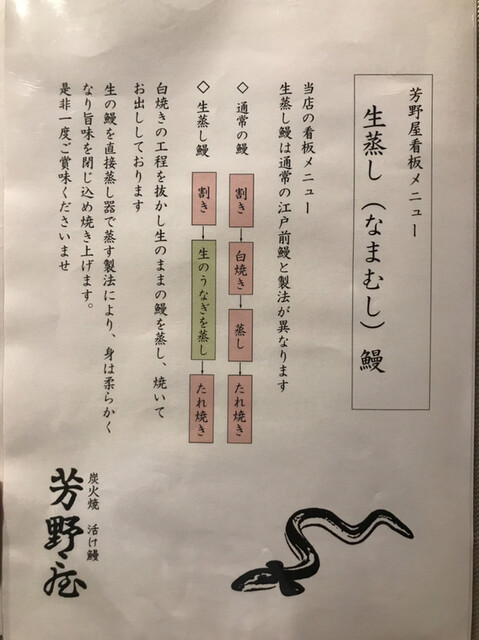 芳野屋看板メニュー
生蒸し（なまむし）鰻
当店の看板メニュー
生蒸し鰻は通常の江戸前鰻と製法が異なります
◇ 通常の鰻 割き 白焼き 蒸し たれ焼き
◇ 生蒸し鰻 割き 生のうなぎを蒸し たれ焼き
白焼きの工程を抜かし生のままの鰻を蒸し、焼いて
お出ししております
生の鰻を直接蒸し器で蒸す製法により、身は柔らかく
なり旨味を閉じ込め焼き上げます。
是非一度ご賞味くださいませ
炭火焼 活け鰻
芳野屋